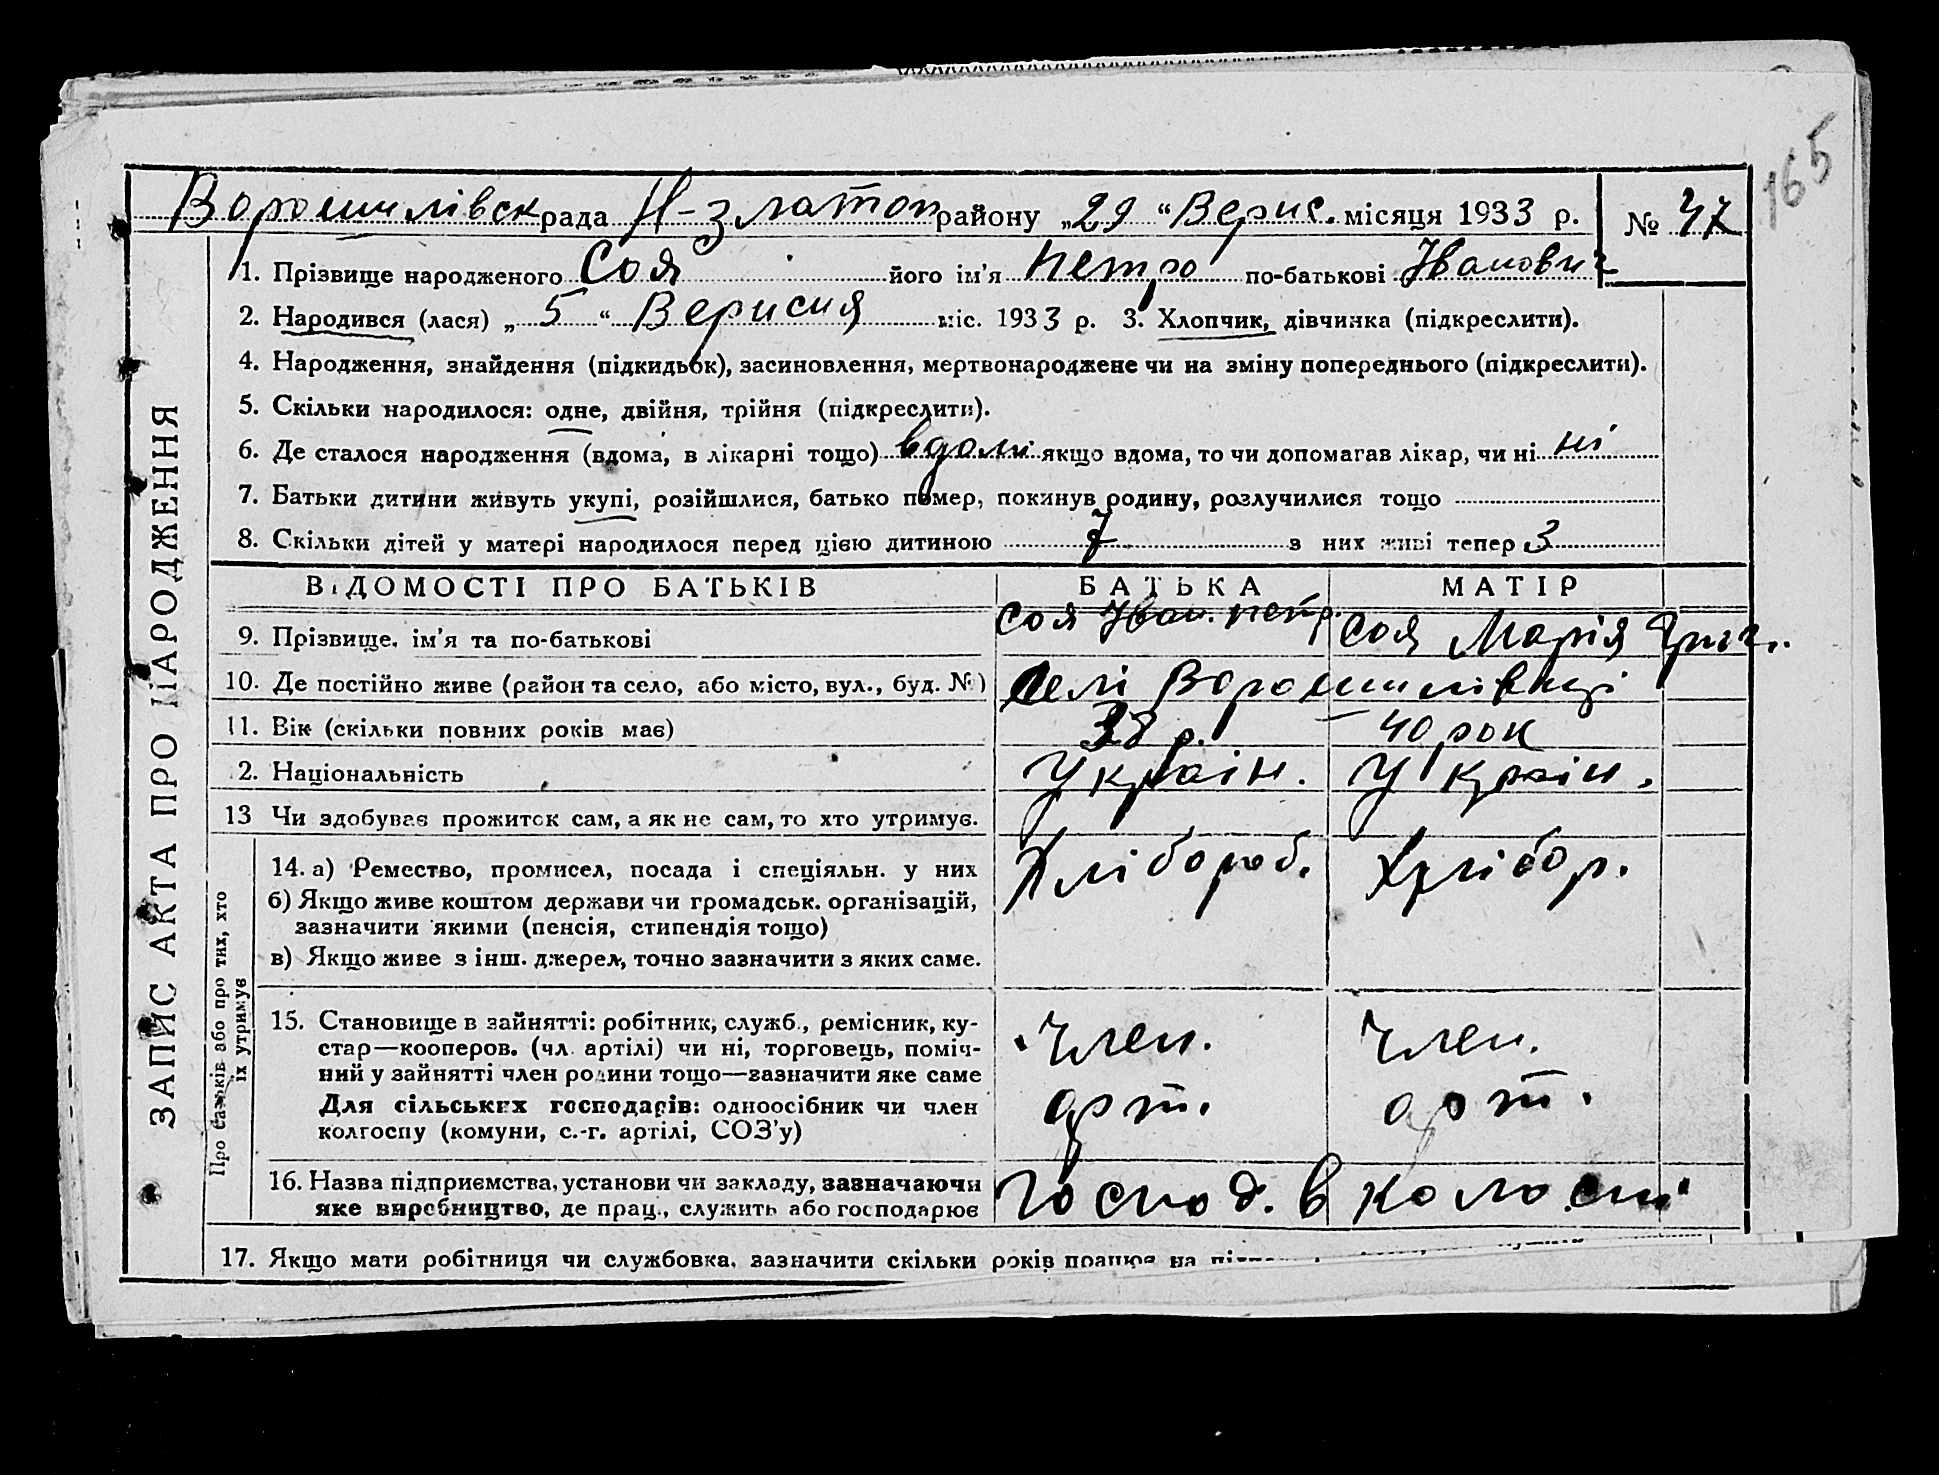 165
Ворошилівск рада Н-златоп району „29“ Верис. місяця 1933 р. № 47
1. Прізвище народженого Соя його ім'я Петро по-батькові Іванович
2. Народився (лася) „5“ Верисня міс. 1933 р. 3. Хлопчик, дівчинка (підкреслити).
4. Народження, знайдення (підкидьок), засиновлення, мертвонароджене чи на зміну попереднього (підкреслити).
5. Скільки народилося: одне, двійня, трійня (підкреслити).
6. Де сталося народження (вдома, в лікарні тощо) вдомі якщо вдома, то чи допомагав лікар, чи ні ні
7. Батьки дитини живуть укупі, розійшлися, батько помер, покинув родину, розлучилися тощо
8. Скільки дітей у матері народилося перед цією дитиною 7 з них живі тепер 3
ВІДОМОСТІ ПРО БАТЬКІВ БАТЬКА МАТІР
9. Прізвище, ім'я та по-батькові Соя Іван. петр. Соя Марія Григ.
10. Де постійно живе (район та село, або місто, вул., буд. №) Селі Ворошилівці
11. Вік (скільки повних років має) 38 р. 40 рок
2. Національність Україн. Україн.
13 Чи здобуває прожиток сам, а як не сам, то хто утримує.
14. а) Ремество, промисел, посада і спеціяльн. у них Хлібороб. Хлібор.
б) Якщо живе коштом держави чи громадськ. організацій,
зазначити якими (пенсія, стипендія тощо)
в) Якщо живе з інш. джерел, точно зазначити з яких саме.
15. Становище в зайнятті: робітник, служб., ремісник, ку-
стар—кооперов. (чл. артілі) чи ні, торговець, поміч- Член. Член.
ний у зайнятті член родини тощо—зазначити яке саме
Для сільських господарів: одноосібник чи член арт. арт.
колгоспу (комуни, с.-г. артілі, СОЗ'у)
16. Назва підприємства, установи чи закладу, зазначаючи Господ. в
яке виробництво, де прац., служить або господарює
17. Якщо мати робітниця чи службовка, зазначити скільки років працює на
ЗАПИС АКТА ПРО НАРОДЖЕННЯ
Про батьків або про тих, хто
їх утримує